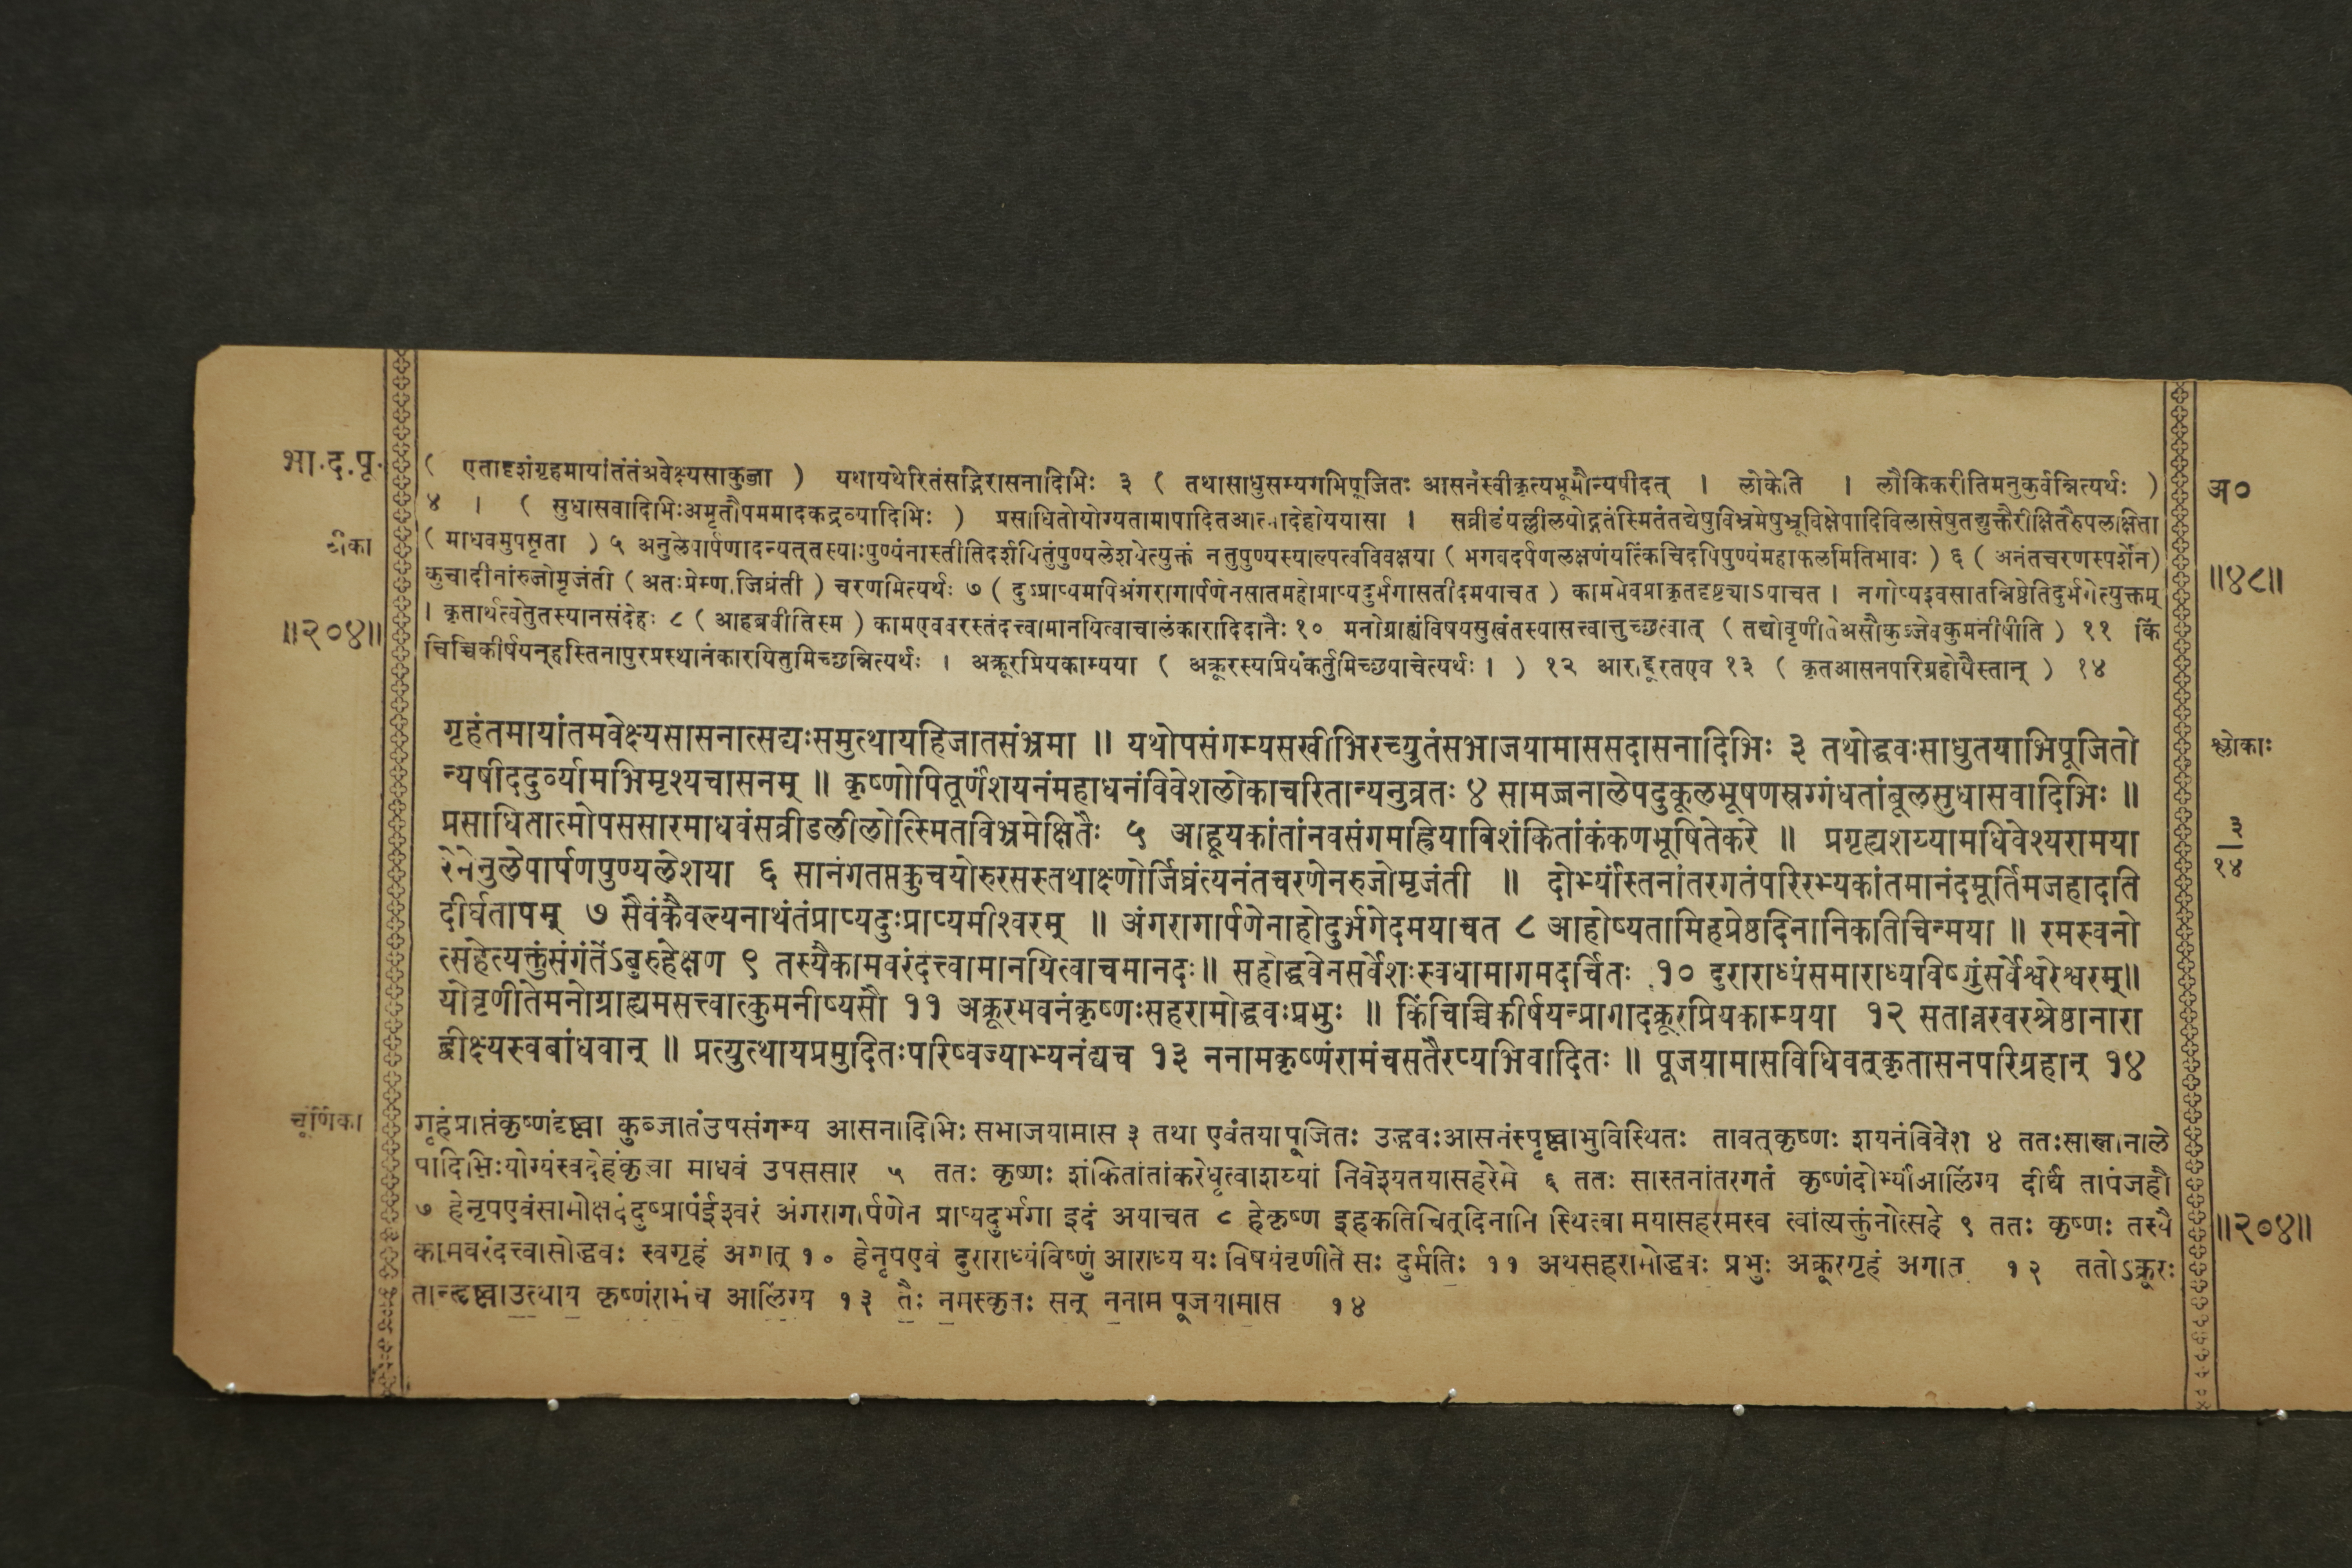 भा.द.पू.
टीका
॥२०४॥
( एतादृशंगृहमायांतंतंअवेक्ष्यसाकुब्जा ) यथायथेरितंसद्भिरासनादिभिः ३ ( तथासाधुसम्यगभिपूजितः आसनंस्वीकृत्यभूमौन्यषीदत् । लोकेति । लौकिकरीतिमनुकुर्वन्नित्यर्थः )
४ । ( सुधासवादिभिःअमृतौपममादकद्रव्यादिभिः ) प्रसाधितोयोग्यतामापादितआत्मादेहोययासा । सव्रीडंयल्लीलयोद्गतंस्मितंतद्येषुविभ्रमेषुभ्रूविक्षेपादिविलासेषुतद्युक्तैरीक्षितैरुपलक्षिता
( माधवमुपसृता ) ५ अनुलेपार्पणादन्यत्तस्याःपुण्यंनास्तीतिदर्शयितुंपुण्यलेशयेत्युक्तं नतुपुण्यस्याल्पत्वविवक्षया ( भगवदर्पणलक्षणंयत्किंचिदपिपुण्यंमहाफलमितिभावः ) ६ ( अनंतचरणस्पर्शेन)
कुचादीनांरुजोमृजंती ( अतःप्रेम्णाजिघ्रंती ) चरणमित्यर्थः ७ ( दुःप्राप्यमपिअंगरागार्पणेनसातमहोप्राप्यदुर्भगासतीदमयाचत ) काममेवप्राकृतदृष्ट्याऽयाचत । नगोप्यइवसातन्निष्ठेतिदुर्भगेत्युक्तम्
। कृतार्थत्वेतुतस्यानसंदेहः ८ ( आहब्रवीतिस्म ) कामएववरस्तंदत्त्वामानयित्वाचालंकारादिदानैः १० मनोग्राह्यंविषयसुखंतस्यासत्त्वात्तुच्छत्वात् ( तद्योवृणीतेअसौकुऽजेवकुमनीषीति ) ११ किं
चिच्चिकीर्षयन्हस्तिनापुरप्रस्थानंकारयितुमिच्छन्नित्यर्थः । अक्रूरप्रियकाम्यया ( अक्रूरस्यप्रियंकर्तुमिच्छयाचेत्यर्थः । ) १२ आराद्दूरतएव १३ ( कृतआसनपरिग्रहोयैस्तान् ) १४
गृहंतमायांतमवेक्ष्यसासनात्सद्यःसमुत्थायहिजातसंभ्रमा ॥ यथोपसंगम्यसखीभिरच्युतंसभाजयामाससदासनादिभिः ३ तथोद्धवःसाधुतयाभिपूजितो
न्यषीददुर्व्यामभिमृश्यचासनम् ॥ कृष्णोपितूर्णंशयनंमहाधनंविवेशलोकाचरितान्यनुव्रतः ४ सामज्जनालेपदुकूलभूषणस्रग्गंधतांबूलसुधासवादिभिः ॥
प्रसाधितात्मोपससारमाधवंसव्रीडलीलोत्स्मितविभ्रमेक्षितैः ५ आहूयकांतांनवसंगमह्रियाविशंकितांकंकणभूषितेकरे ॥ प्रगृह्यशय्यामधिवेश्यरामया
रेमेनुलेपार्पणपुण्यलेशया ६ सानंगतप्तकुचयोरुरसस्तथाक्ष्णोर्जिघ्रंत्यनंतचरणेनरुजोमृजंती ॥ दोर्भ्यांस्तनांतरगतंपरिरभ्यकांतमानंदमूर्तिमजहादति
दीर्घतापम् ७ सैवंकैवल्यनाथंतंप्राप्यदुःप्राप्यमीश्वरम् ॥ अंगरागार्पणेनाहोदुर्भगेदमयाचत ८ आहोष्यतामिहप्रेष्ठदिनानिकतिचिन्मया ॥ रमस्वनो
त्सहेत्यक्तुंसंगंतेंऽबुरुहेक्षण ९ तस्यैकामवरंदत्त्वामानयित्वाचमानदः॥ सहोद्धवेनसर्वेशःस्वधामागमदर्चितः १० दुराराध्यंसमाराध्यविष्णुंसर्वेश्वरेश्वरम्॥
योवृणीतेमनोग्राह्यमसत्त्वात्कुमनीष्यसौ ११ अक्रूरभवनंकृष्णःसहरामोद्धवःप्रभुः ॥ किंचिच्चिकीर्षयन्प्रागादक्रूरप्रियकाम्यया १२ सतान्नरवरश्रेष्ठानारा
द्वीक्ष्यस्वबांधवान् ॥ प्रत्युत्थायप्रमुदितःपरिष्वज्याभ्यनंद्यच १३ ननामकृष्णंरामंचसतैरप्यभिवादितः ॥ पूजयामासविधिवत्कृतासनपरिग्रहान् १४
चूर्णिका
गृहंप्राप्तंकृष्णंदृष्ट्वा कुब्जातंउपसंगम्य आसनादिभिः सभाजयामास ३ तथा एवंतयापूजितः उद्धवःआसनंस्पृष्ट्वाभुविस्थितः तावत्कृष्णः शयनंविवेश ४ ततःसास्नानाले
पादिभिःयोग्यंस्वदेहंकृत्वा माधवं उपससार ५ ततः कृष्णः शंकितांतांकरेधृत्वाशय्यां निवेश्यतयासहरेमे ६ ततः सास्तनांतरगतं कृष्णंदोर्भ्यांआलिंग्य दीर्घं तापंजहौ
७ हेनृपएवंसामोक्षदंदुष्प्रापंईश्वरं अंगरागार्पणेन प्राप्यदुर्भगा इदं अयाचत ८ हेकृष्ण इहकतिचित्दिनानि स्थित्वा मयासहरमस्व त्वांत्यक्तुंनोत्सहे ९ ततः कृष्णः तस्यै
कामवरंदत्त्वासोद्धवः स्वगृहं अगात् १० हेनृपएवं दुराराध्यंविष्णुं आराध्य यः विषयंवृणीते सः दुर्मतिः ११ अथसहरामोद्धवः प्रभुः अक्रूरगृहं अगात् १२ ततोऽक्रूरः
तान्दृष्ट्वाउत्थाय कृष्णंरामंच आलिंग्य १३ तैः नमस्कृतः सन् ननाम पूजयामास १४
अ०
॥४८॥
श्लोकाः
३
१४
॥२०४॥